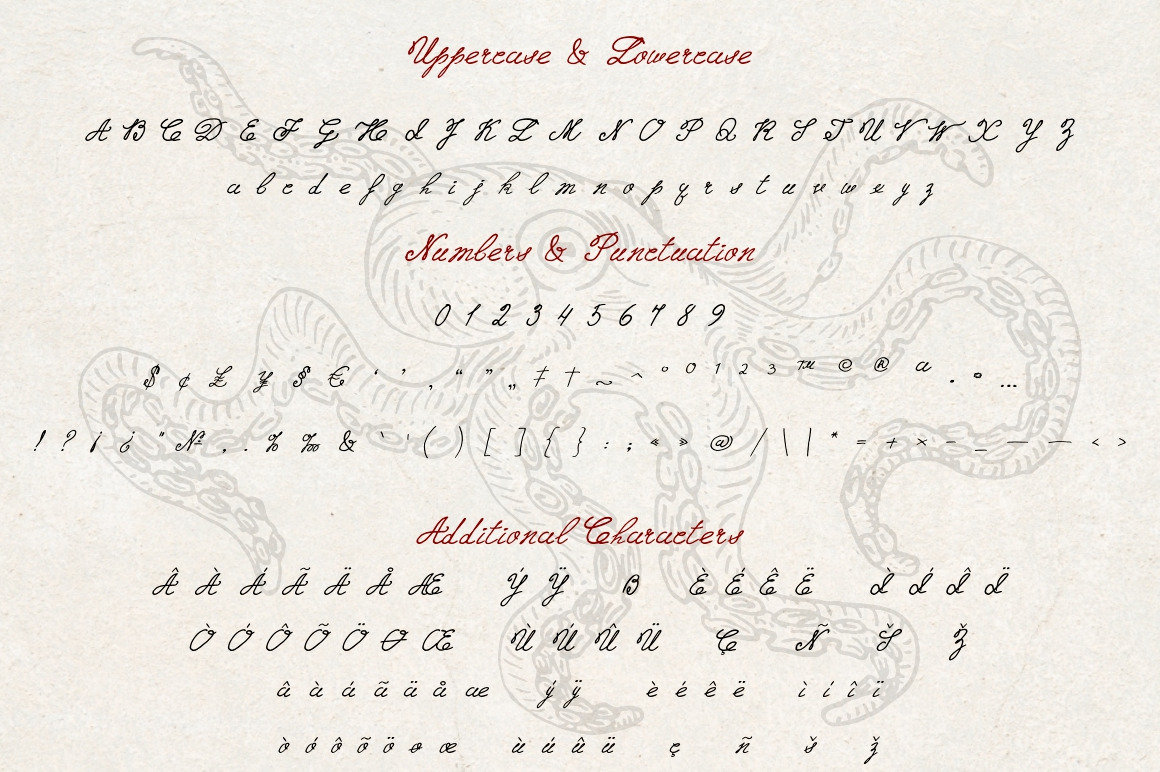 Uppercase & Lowercase
A B C D E F G H I J K L M N O P Q R S T U V W X Y Z
a b c d e f g h i j k l m n o p q r s t u v w x y z
Numbers & Punctuation
0 1 2 3 4 5 6 7 8 9
$ ¢ £ ¥ § € ‘ ’ ‚ “ ” „ ‡ † ~ ^ ° 0 1 2 3 ™ © ® a . ° …
! ? ¡ ¿ " № , . % ‰ & ` ' ( ) [ ] { } : ; « » @ / \ | * = + × - _ — – < >
Additional Characters
Â À Á Ã Ä Å Æ Ý Ÿ ß È É Ê Ë Ì Í Î Ï
Ò Ó Ô Õ Ö Ø Œ Ù Ú Û Ü Ç Ñ Š Ž
â à á ã ä å æ ý ÿ è é ê ë ì í î ï
ò ó ô õ ö ø œ ù ú û ü ç ñ š ž